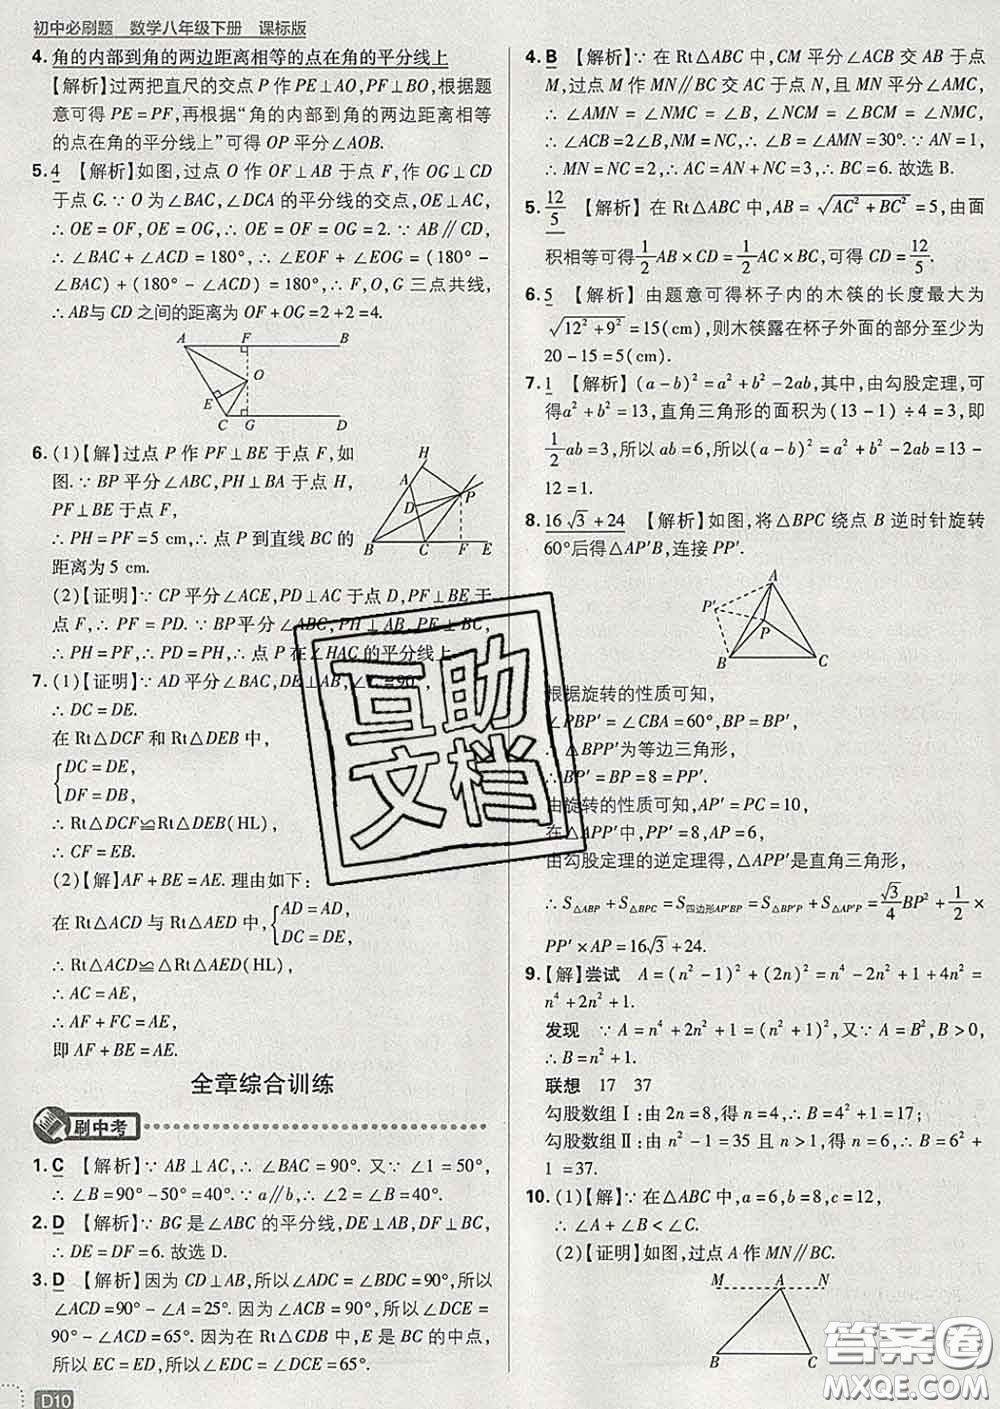 初中必刷题 数学八年级下册 课标版
4. 角的内部到角的两边距离相等的点在角的平分线上
【解析】过两把直尺的交点 P 作 PE⊥AO,PF⊥BO,根据题
意可得 PE = PF,再根据“角的内部到角的两边距离相等
的点在角的平分线上”可得 OP 平分∠AOB.
5. 4 【解析】如图,过点 O 作 OF⊥AB 于点 F,作 OG⊥CD
于点 G.∵ O 为∠BAC,∠DCA 的平分线的交点,OE⊥AC,
∴ OE = OF,OE = OG,∴ OF = OG = 2. ∵ AB∥CD,
∴ ∠BAC + ∠ACD = 180°,∴ ∠EOF + ∠EOG = (180° −
∠BAC) + (180° − ∠ACD) = 180°,∴ F,O,G 三点共线,
∴ AB与 CD 之间的距离为 OF + OG = 2 + 2 = 4.
A F B
O
E
C G D
6. (1)【解】过点 P 作 PF⊥BE 于点 F,如
图. ∵ BP 平分∠ABC,PH⊥BA 于点 H,
PF⊥BE 于点 F,
∴ PH = PF = 5 cm,∴ 点 P 到直线 BC 的
距离为 5 cm.
H
A
D P
B C F E
(2)【证明】∵ CP 平分∠ACE,PD⊥AC 于点 D,PF⊥BE 于
点 F,∴ PF = PD. ∵ BP 平分∠ABC,PH⊥AB,PF⊥BE,
∴ PH = PF,∴ PH = PD,∴ 点 P 在∠HAC 的平分线上.
7. (1)【证明】∵ AD 平分∠BAC,DE⊥AB,∠C = 90°,
∴ DC = DE.
在 Rt△DCF 和 Rt△DEB 中,
{DC = DE,
DF = DB,
∴ Rt△DCF≌Rt△DEB(HL),
∴ CF = EB.
(2)【解】AF + BE = AE. 理由如下:
在 Rt△ACD 与 Rt△AED 中, {AD = AD,
DC = DE,
∴ Rt△ACD≌△Rt△AED(HL),
∴ AC = AE,
∴ AF + FC = AE,
即 AF + BE = AE.
全章综合训练
刷中考
1. C 【解析】∵ AB⊥AC,∴ ∠BAC = 90°. 又∵ ∠1 = 50°,
∴ ∠B = 90° − 50° = 40°. ∵ a∥b,∴ ∠2 = ∠B = 40°.
2. D 【解析】∵ BG 是∠ABC 的平分线,DE⊥AB,DF⊥BC,
∴ DE = DF = 6. 故选 D.
3. D 【解析】因为 CD⊥AB,所以∠ADC = ∠BDC = 90°,所以
∠ACD = 90° − ∠A = 25°. 因为∠ACB = 90°,所以∠DCE =
90° − ∠ACD = 65°. 因为在 Rt△CDB 中,E 是 BC 的中点,
所以 EC = ED,所以∠EDC = ∠DCE = 65°.
D10
4. B 【解析】∵ 在 Rt△ABC 中,CM 平分∠ACB 交 AB 于点
M,过点 M 作 MN∥BC 交 AC 于点 N,且 MN 平分∠AMC,
∴ ∠AMN = ∠NMC = ∠B,∠NCM = ∠BCM = ∠NMC,
∴ ∠ACB = 2∠B,NM = NC,∴ ∠B = ∠AMN = 30°. ∵ AN = 1,
∴ MN = NC = 2,∴ AC = AN + NC = 3,∴ BC = 6. 故选 B.
5. 12/5 【解析】在 Rt△ABC 中,AB = √(AC² + BC²) = 5,由面
积相等可得 1/2 AB × CD = 1/2 AC × BC,∴ CD = 12/5.
6. 5 【解析】由题意可得杯子内的木筷的长度最大为
√(12² + 9²) = 15(cm),则木筷露在杯子外面的部分至少为
20 − 15 = 5(cm).
7. 1 【解析】(a − b)² = a² + b² − 2ab,其中,由勾股定理,可
得 a² + b² = 13,直角三角形的面积为(13 − 1) ÷ 4 = 3,即
1/2 ab = 3,所以 ab = 6,所以(a − b)² = a² + b² − 2ab = 13 −
12 = 1.
8. 16√3 + 24 【解析】如图,将△BPC 绕点 B 逆时针旋转
60°后得△AP′B,连接 PP′.
A
P′
P
B C
根据旋转的性质可知,
∠PBP′ = ∠CBA = 60°,BP = BP′,
∴ △BPP′为等边三角形,
∴ BP′ = BP = 8 = PP′.
由旋转的性质可知,AP′ = PC = 10,
在△APP′中,PP′ = 8,AP = 6,
由勾股定理的逆定理得,△APP′是直角三角形,
∴ S△ABP + S△BPC = S四边形AP′BP = S△BP′P + S△AP′P = √3/4 BP² + 1/2 ×
PP′ × AP = 16√3 + 24.
9. 【解】尝试 A = (n² − 1)² + (2n)² = n⁴ − 2n² + 1 + 4n² =
n⁴ + 2n² + 1.
发现 ∵ A = n⁴ + 2n² + 1 = (n² + 1)²,又∵ A = B²,B > 0,
∴ B = n² + 1.
联想 17 37
勾股数组Ⅰ:由 2n = 8,得 n = 4,∴ B = 4² + 1 = 17;
勾股数组Ⅱ:由 n² − 1 = 35 且 n > 1,得 n = 6,∴ B = 6² +
1 = 37.
10. (1)【解】∵ 在△ABC 中,a = 6,b = 8,c = 12,
∴ ∠A + ∠B < ∠C.
(2)【证明】如图,过点 A 作 MN∥BC.
M A N
B C
互助
文档
答案圈
MXQE.COM